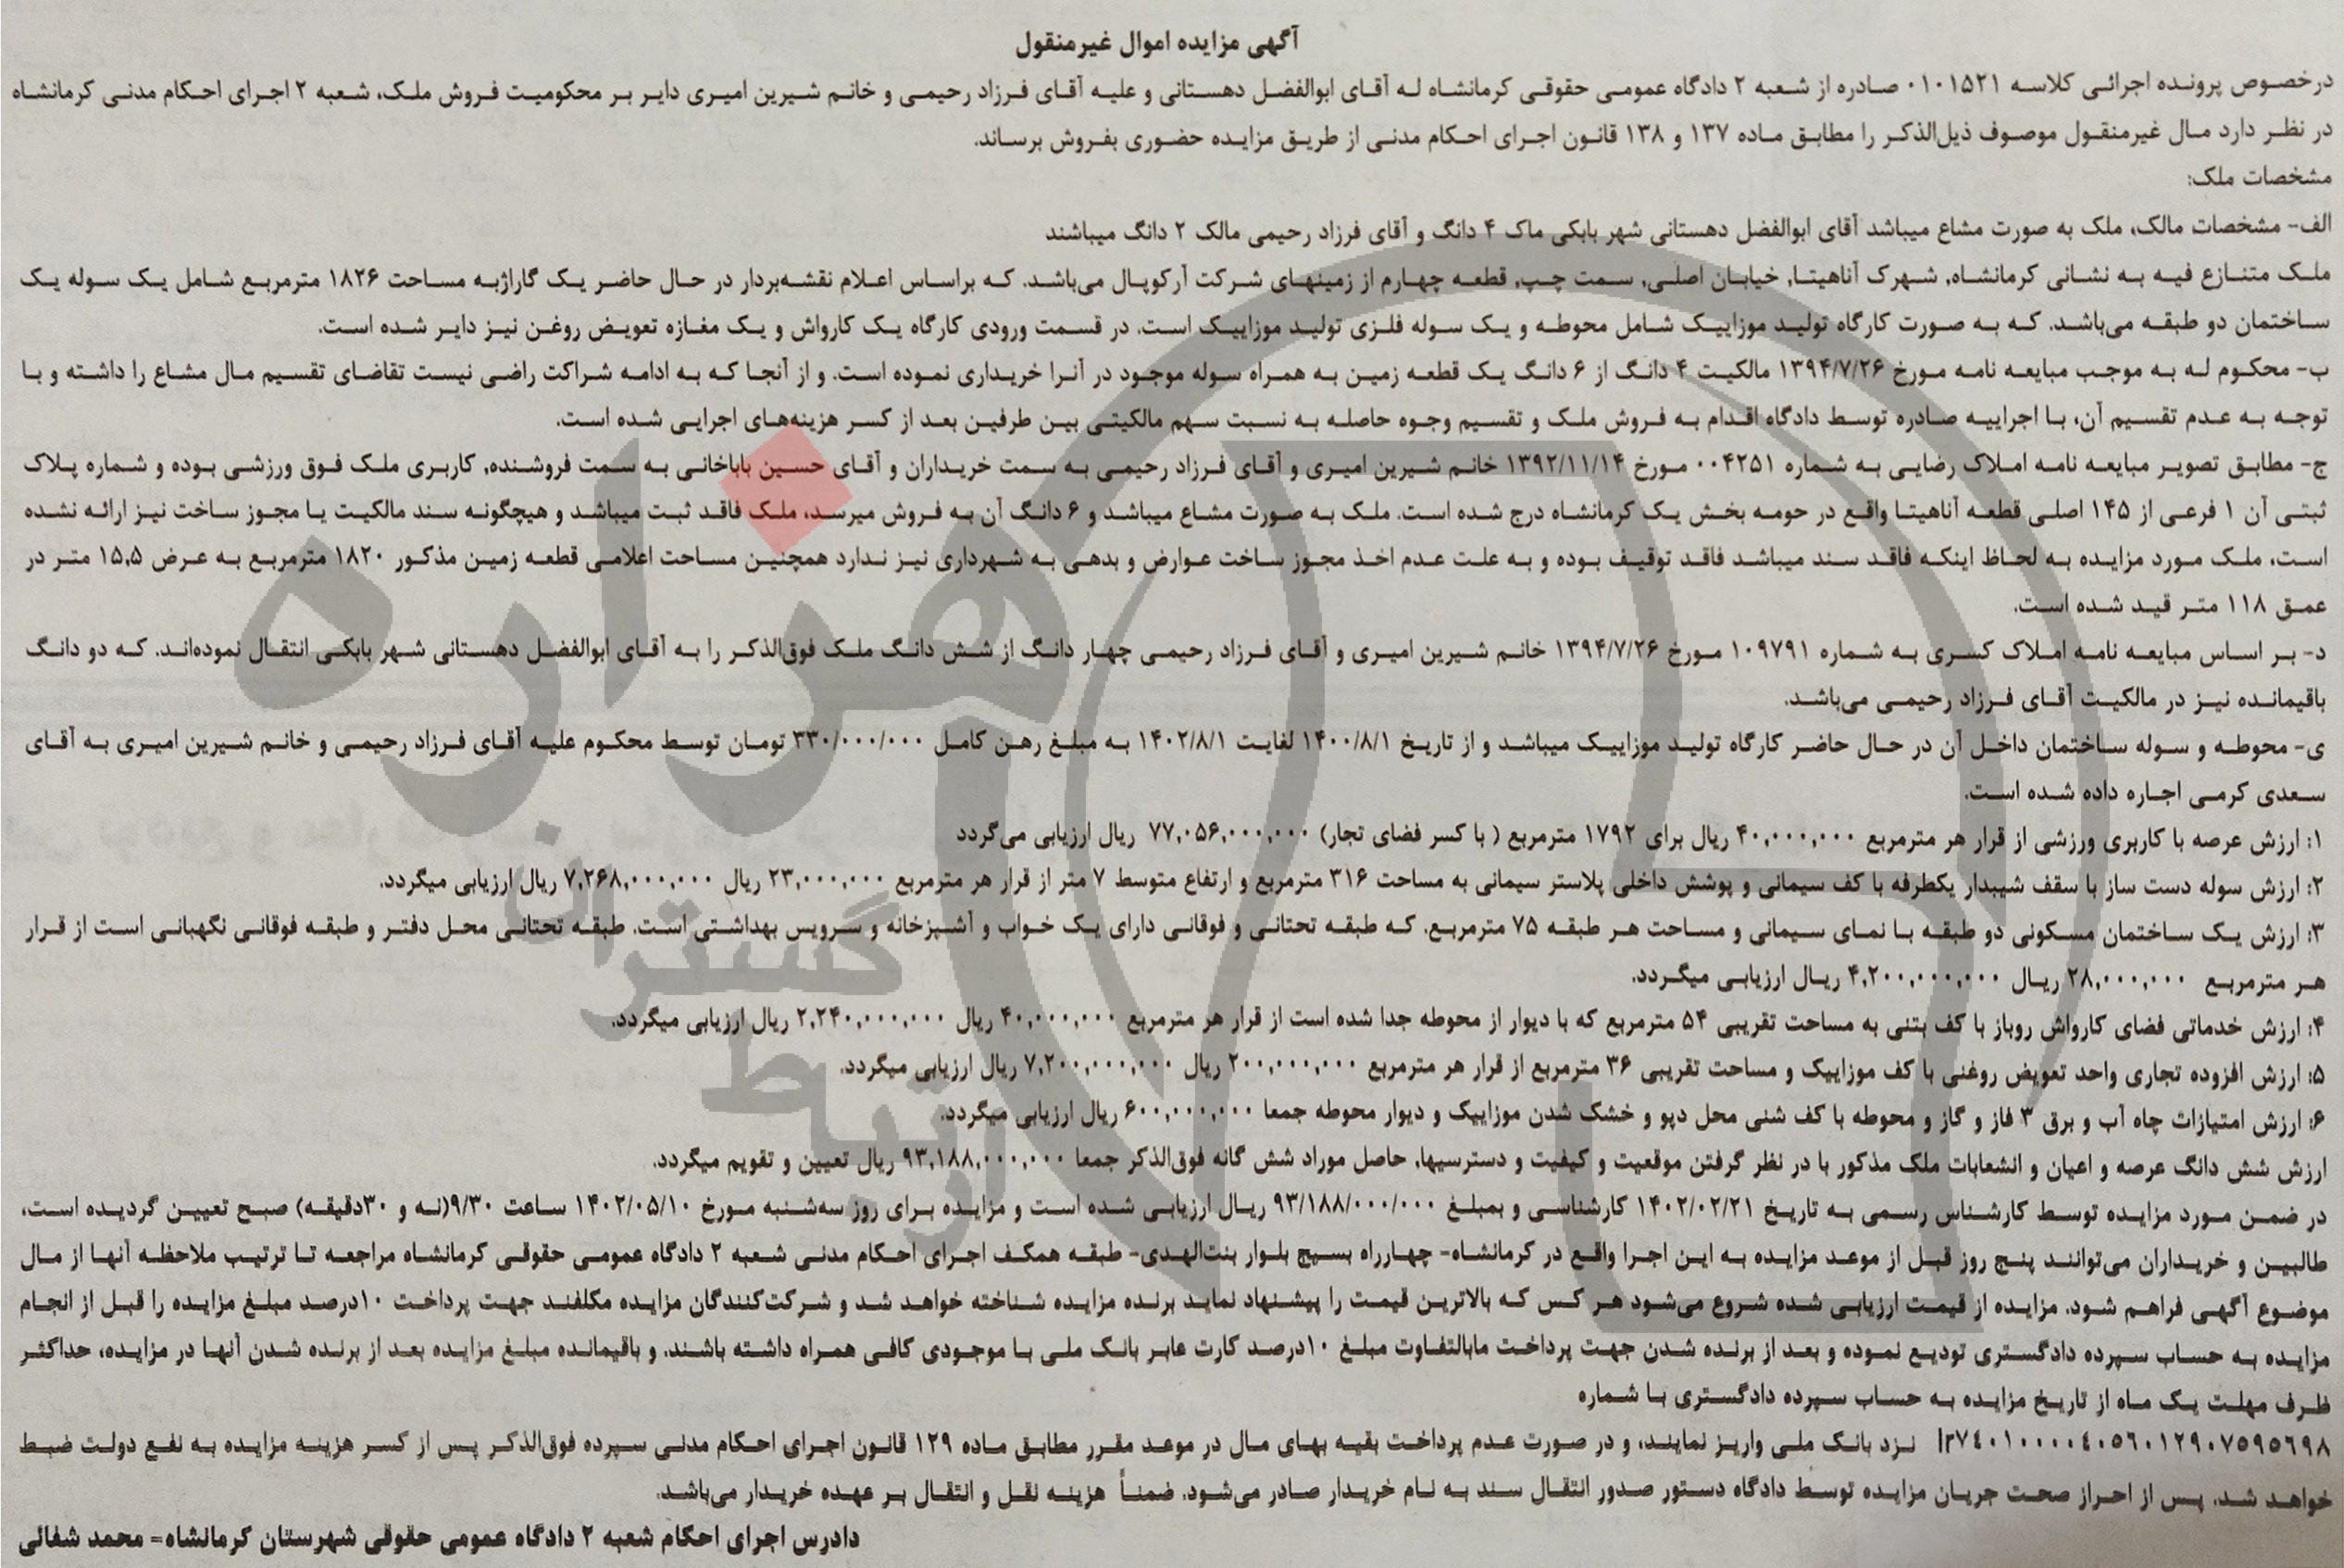 آگهی مزایده اموال غیرمنقول
درخصوص پرونده اجرائی کلاسه ۰۱۰۱۵۲۱ صادره از شعبه ۲ دادگاه عمومی حقوقی کرمانشاه له آقای ابوالفضل دهستانی و علیه آقای فرزاد رحیمی و خانم شیرین امیری دایر بر محکومیت فروش ملک، شعبه ۲ اجرای احکام مدنی کرمانشاه
در نظر دارد مال غیرمنقول موصوف ذیل‌الذکر را مطابق ماده ۱۳۷ و ۱۳۸ قانون اجرای احکام مدنی از طریق مزایده حضوری بفروش برساند.
مشخصات ملک:
الف- مشخصات مالک، ملک به صورت مشاع میباشد آقای ابوالفضل دهستانی شهر بابکی ماک ۴ دانگ و آقای فرزاد رحیمی مالک ۲ دانگ میباشند
ملک متنازع فیه به نشانی کرمانشاه, شهرک آناهیتا, خیابان اصلی, سمت چپ, قطعه چهارم از زمینهای شرکت آرکوپال می‌باشد. که براساس اعلام نقشه‌بردار در حال حاضر یک گاراژبه مساحت ۱۸۲۶ مترمربع شامل یک سوله یک
ساختمان دو طبقه می‌باشد. که به صورت کارگاه تولید موزاییک شامل محوطه و یک سوله فلزی تولید موزاییک است. در قسمت ورودی کارگاه یک کارواش و یک مغازه تعویض روغن نیز دایر شده است.
ب- محکوم له به موجب مبایعه نامه مورخ ۱۳۹۴/۷/۲۶ مالکیت ۴ دانگ از ۶ دانگ یک قطعه زمین به همراه سوله موجود در آنرا خریداری نموده است. و از آنجا که به ادامه شراکت راضی نیست تقاضای تقسیم مال مشاع را داشته و با
توجه به عدم تقسیم آن، با اجراییه صادره توسط دادگاه اقدام به فروش ملک و تقسیم وجوه حاصله به نسبت سهم مالکیتی بین طرفین بعد از کسر هزینه‌های اجرایی شده است.
ج- مطابق تصویر مبایعه نامه املاک رضایی به شماره ۰۰۴۲۵۱ مورخ ۱۳۹۲/۱۱/۱۴ خانم شیرین امیری و آقای فرزاد رحیمی به سمت خریداران و آقای حسین باباخانی به سمت فروشنده, کاربری ملک فوق ورزشی بوده و شماره پلاک
ثبتی آن ۱ فرعی از ۱۴۵ اصلی قطعه آناهیتا واقع در حومه بخش یک کرمانشاه درج شده است. ملک به صورت مشاع میباشد و ۶ دانگ آن به فروش میرسد، ملک فاقد ثبت میباشد و هیچگونه سند مالکیت یا مجوز ساخت نیز ارائه نشده
است، ملک مورد مزایده به لحاظ اینکه فاقد سند میباشد فاقد توقیف بوده و به علت عدم اخذ مجوز ساخت عوارض و بدهی به شهرداری نیز ندارد همچنین مساحت اعلامی قطعه زمین مذکور ۱۸۲۰ مترمربع به عرض ۱۵,۵ متر در
عمق ۱۱۸ متر قید شده است.
د- بر اساس مبایعه نامه املاک کسری به شماره ۱۰۹۷۹۱ مورخ ۱۳۹۴/۷/۲۶ خانم شیرین امیری و آقای فرزاد رحیمی چهار دانگ از شش دانگ ملک فوق‌الذکر را به آقای ابوالفضل دهستانی شهر بابکی انتقال نموده‌اند. که دو دانگ
باقیمانده نیز در مالکیت آقای فرزاد رحیمی می‌باشد.
ی- محوطه و سوله ساختمان داخل آن در حال حاضر کارگاه تولید موزاییک میباشد و از تاریخ ۱۴۰۰/۸/۱ لغایت ۱۴۰۲/۸/۱ به مبلغ رهن کامل ۳۳۰/۰۰۰/۰۰۰ تومان توسط محکوم علیه آقای فرزاد رحیمی و خانم شیرین امیری به آقای
سعدی کرمی اجاره داده شده است.
۱: ارزش عرصه با کاربری ورزشی از قرار هر مترمربع ۴۰,۰۰۰,۰۰۰ ریال برای ۱۷۹۲ مترمربع ( با کسر فضای تجار) ۷۷,۰۵۶,۰۰۰,۰۰۰ ریال ارزیابی می‌گردد
۲: ارزش سوله دست ساز با سقف شیبدار یکطرفه با کف سیمانی و پوشش داخلی پلاستر سیمانی به مساحت ۳۱۶ مترمربع و ارتفاع متوسط ۷ متر از قرار هر مترمربع ۲۳,۰۰۰,۰۰۰ ریال ۷,۲۶۸,۰۰۰,۰۰۰ ریال ارزیابی میگردد.
۳: ارزش یک ساختمان مسکونی دو طبقه با نمای سیمانی و مساحت هر طبقه ۷۵ مترمربع. که طبقه تحتانی و فوقانی دارای یک خواب و آشپزخانه و سرویس بهداشتی است. طبقه تحتانی محل دفتر و طبقه فوقانی نگهبانی است از قرار
هر مترمربع ۲۸,۰۰۰,۰۰۰ ریال ۴,۲۰۰,۰۰۰,۰۰۰ ریال ارزیابی میگردد.
۴: ارزش خدماتی فضای کارواش روباز با کف بتنی به مساحت تقریبی ۵۴ مترمربع که با دیوار از محوطه جدا شده است از قرار هر مترمربع ۴۰,۰۰۰,۰۰۰ ریال ۲,۲۴۰,۰۰۰,۰۰۰ ریال ارزیابی میگردد.
۵: ارزش افزوده تجاری واحد تعویض روغنی با کف موزاییک و مساحت تقریبی ۳۶ مترمربع از قرار هر مترمربع ۲۰۰,۰۰۰,۰۰۰ ریال ۷,۲۰۰,۰۰۰,۰۰۰ ریال ارزیابی میگردد.
۶: ارزش امتیازات چاه آب و برق ۳ فاز و گاز و محوطه با کف شنی محل دپو و خشک شدن موزاییک و دیوار محوطه جمعا ۶۰۰,۰۰۰,۰۰۰ ریال ارزیابی میگردد.
ارزش شش دانگ عرصه و اعیان و انشعابات ملک مذکور با در نظر گرفتن موقعیت و کیفیت و دسترسیها, حاصل موراد شش گانه فوق‌الذکر جمعا ۹۳,۱۸۸,۰۰۰,۰۰۰ ریال تعیین و تقویم میگردد.
در ضمن مورد مزایده توسط کارشناس رسمی به تاریخ ۱۴۰۲/۰۲/۲۱ کارشناسی و بمبلغ ۹۳/۱۸۸/۰۰۰/۰۰۰ ریال ارزیابی شده است و مزایده برای روز سه‌شنبه مورخ ۱۴۰۲/۰۵/۱۰ ساعت ۹/۳۰(نه و ۳۰دقیقه) صبح تعیین گردیده است،
طالبین و خریداران می‌توانند پنج روز قبل از موعد مزایده به این اجرا واقع در کرمانشاه- چهارراه بسیج بلوار بنت‌الهدی- طبقه همکف اجرای احکام مدنی شعبه ۲ دادگاه عمومی حقوقی کرمانشاه مراجعه تا ترتیب ملاحظه آنها از مال
موضوع آگهی فراهم شود. مزایده از قیمت ارزیابی شده شروع می‌شود هر کس که بالاترین قیمت را پیشنهاد نماید برنده مزایده شناخته خواهد شد و شرکت‌کنندگان مزایده مکلفند جهت پرداخت ۱۰درصد مبلغ مزایده را قبل از انجام
مزایده به حساب سپرده دادگستری تودیع نموده و بعد از برنده شدن جهت پرداخت مابالتفاوت مبلغ ۱۰درصد کارت عابر بانک ملی با موجودی کافی همراه داشته باشند. و باقیمانده مبلغ مزایده بعد از برنده شدن آنها در مزایده، حداکثر
ظرف مهلت یک ماه از تاریخ مزایده به حساب سپرده دادگستری با شماره
Ir۷٤۰۱۰۰۰۰٤۰٥٦۰۱۲۹۰۷٥۹٥٦۹۸ نزد بانک ملی واریز نمایند، و در صورت عدم پرداخت بقیه بهای مال در موعد مقرر مطابق ماده ۱۲۹ قانون اجرای احکام مدنی سپرده فوق‌الذکر پس از کسر هزینه مزایده به نفع دولت ضبط
خواهد شد. پس از احراز صحت جریان مزایده توسط دادگاه دستور صدور انتقال سند به نام خریدار صادر می‌شود. ضمناً هزینه نقل و انتقال بر عهده خریدار می‌باشد.
دادرس اجرای احکام شعبه ۲ دادگاه عمومی حقوقی شهرستان کرمانشاه- محمد شفائی
هزاره
گستران
ارتباط